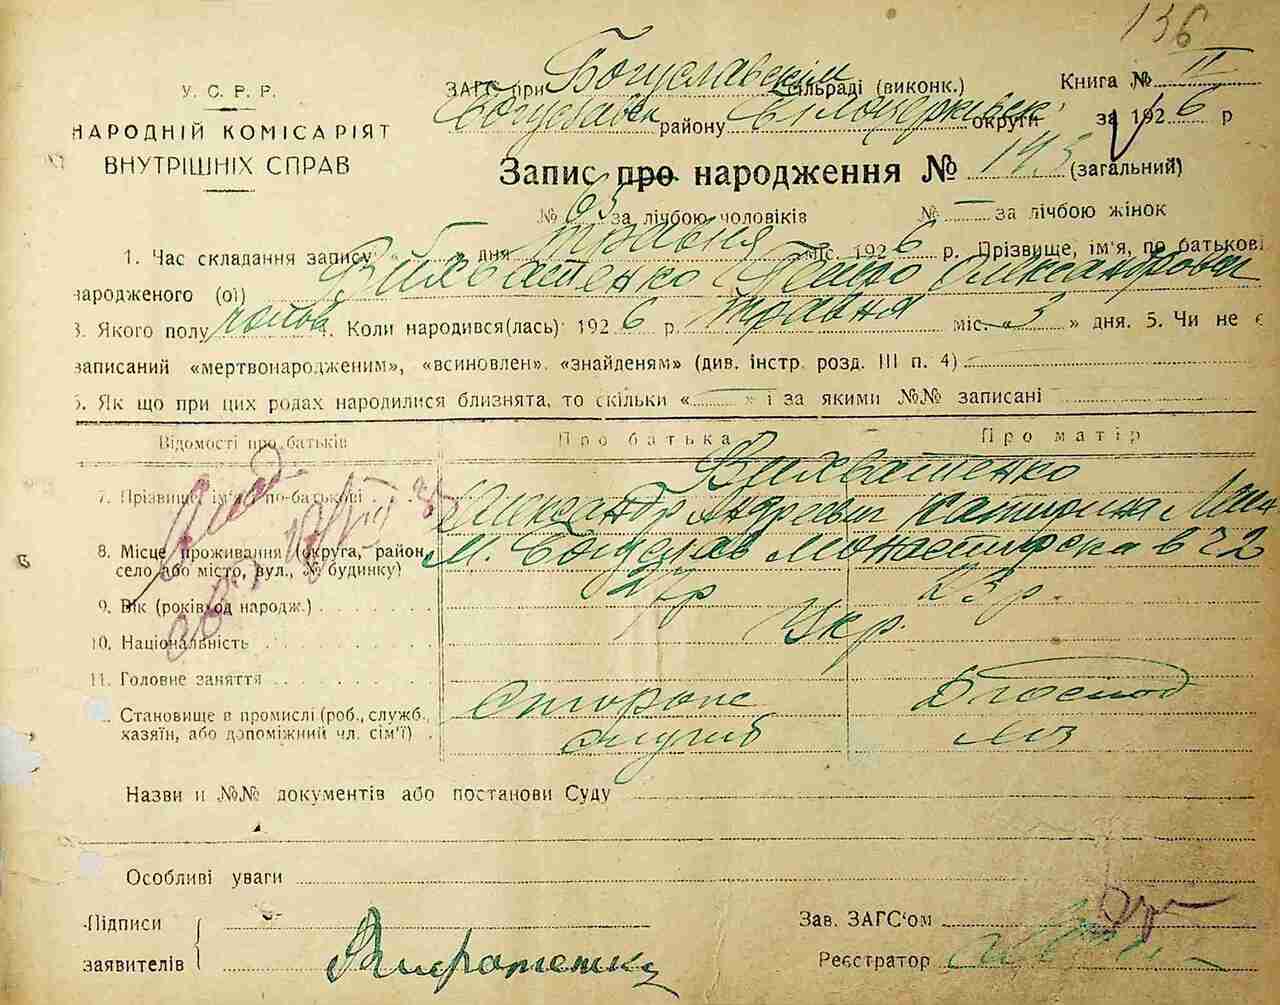 136
У. С. Р. Р.
НАРОДНІЙ КОМІСАРІЯТ
ВНУТРІШНІХ СПРАВ
ЗАГС при Богуславскім сільраді (виконк.) Книга № II
Богуславск району Білоцерківськ округи за 1926 р
Запис про народження № 143 (загальний)
№ 63 за лічбою чоловіків № — за лічбою жінок
1. Час складання запису дня травня міс. 1926 р. Прізвище, ім'я, по батькові
народженого (ої) Петро Александрович
3. Якого полу чолов 4. Коли народився(лась) 1926 р. травня міс. «3» дня. 5. Чи не є
записаний «мертвонародженим», «всиновлен», «знайденям» (див. інстр. розд. III п. 4)
6. Як що при цих родах народилися близнята, то скільки « — » і за якими №№ записані
Відомості про батьків Про батька Про матір
7. Прізвище, ім'я, по-батькові
Александр Андреевич Катерина
8. Місце проживання (округа, район, село або місто, вул., № будинку) М. Богуслав Монастирска в 22
9. Вік (років од народж.) 23 р.
10. Національність Укр.
11. Головне заняття
Становище в промислі (роб., служб., хазяїн, або допоміжний чл. сім'ї)
Сторож Д господ
служб
Назви и №№ документів або постанови Суду
Особливі уваги
Підписи
заявителів
Зав. ЗАГС'ом
Реєстратор